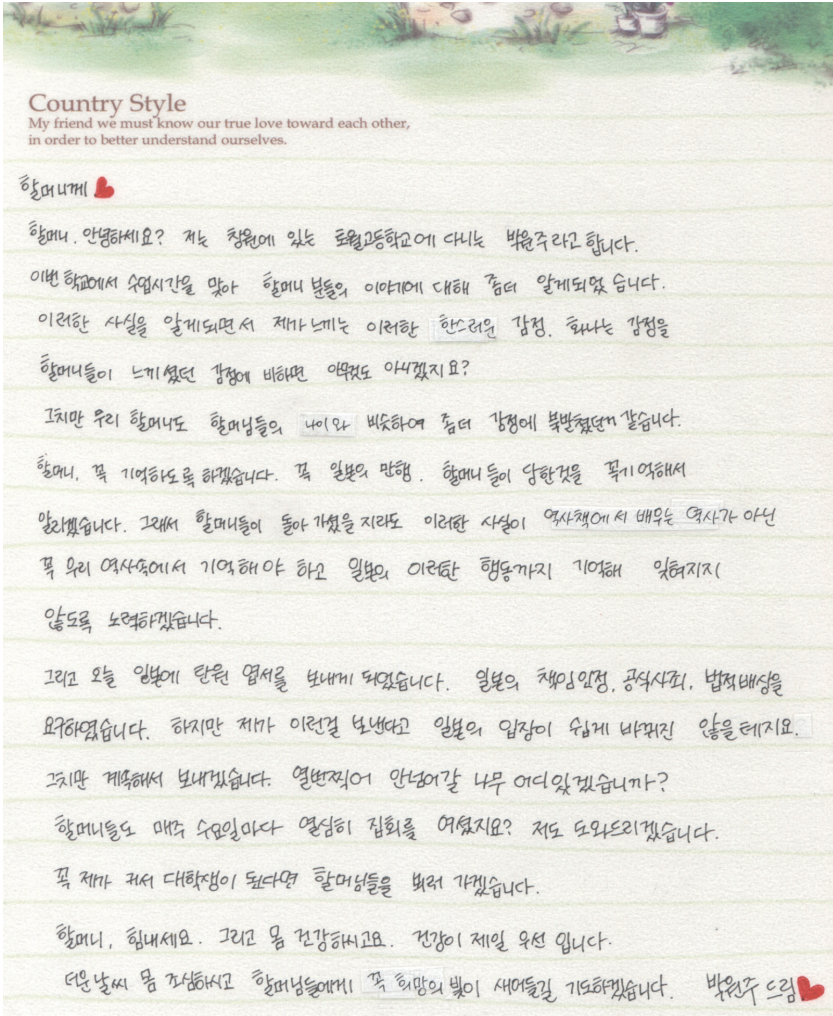 Country Style
My friend we must know our true love toward each other,
in order to better understand ourselves.
할머니께
할머니. 안녕하세요? 저는 창원에 있는 토월고등학교에 다니는 박원주라고 합니다.
이번 학교에서 수업시간을 맞아 할머니 분들의 이야기에 대해 좀더 알게되었습니다.
이러한 사실을 알게되면서 제가 느끼는 이러한 한스러운 감정, 화나는 감정을
할머니들이 느끼셨던 감정에 비하면 아무것도 아니겠지요?
그치만 우리 할머니도 할머님들의 나이와 비슷하여 좀더 감정에 북받쳤던거 같습니다.
할머니, 꼭 기억하도록 하겠습니다. 꼭 일본의 만행. 할머니들이 당한것을 꼭기억해서
알리겠습니다. 그래서 할머니들이 돌아가셨을지라도 이러한 사실이 역사책에서 배우는 역사가 아닌
꼭 우리 역사속에서 기억해야 하고 일본의 이러한 행동까지 기억해 잊혀지지
않도록 노력하겠습니다.
그리고 오늘 일본에 탄원 엽서를 보내게 되었습니다. 일본의 책임인정, 공식사죄, 법적배상을
요구하였습니다. 하지만 제가 이런걸 보낸다고 일본의 입장이 쉽게 바뀌진 않을테지요.
그치만 계속해서 보내겠습니다. 열번찍어 안넘어갈 나무 어디있겠습니까?
할머니들도 매주 수요일마다 열심히 집회를 여셨지요? 저도 도와드리겠습니다.
꼭 제가 커서 대학생이 된다면 할머님들을 뵈러 가겠습니다.
할머니, 힘내세요. 그리고 몸 건강하시고요. 건강이 제일 우선 입니다.
더운날씨 몸 조심하시고 할머님들에게 꼭 희망의 빛이 새어들길 기도하겠습니다. 박원주 드림